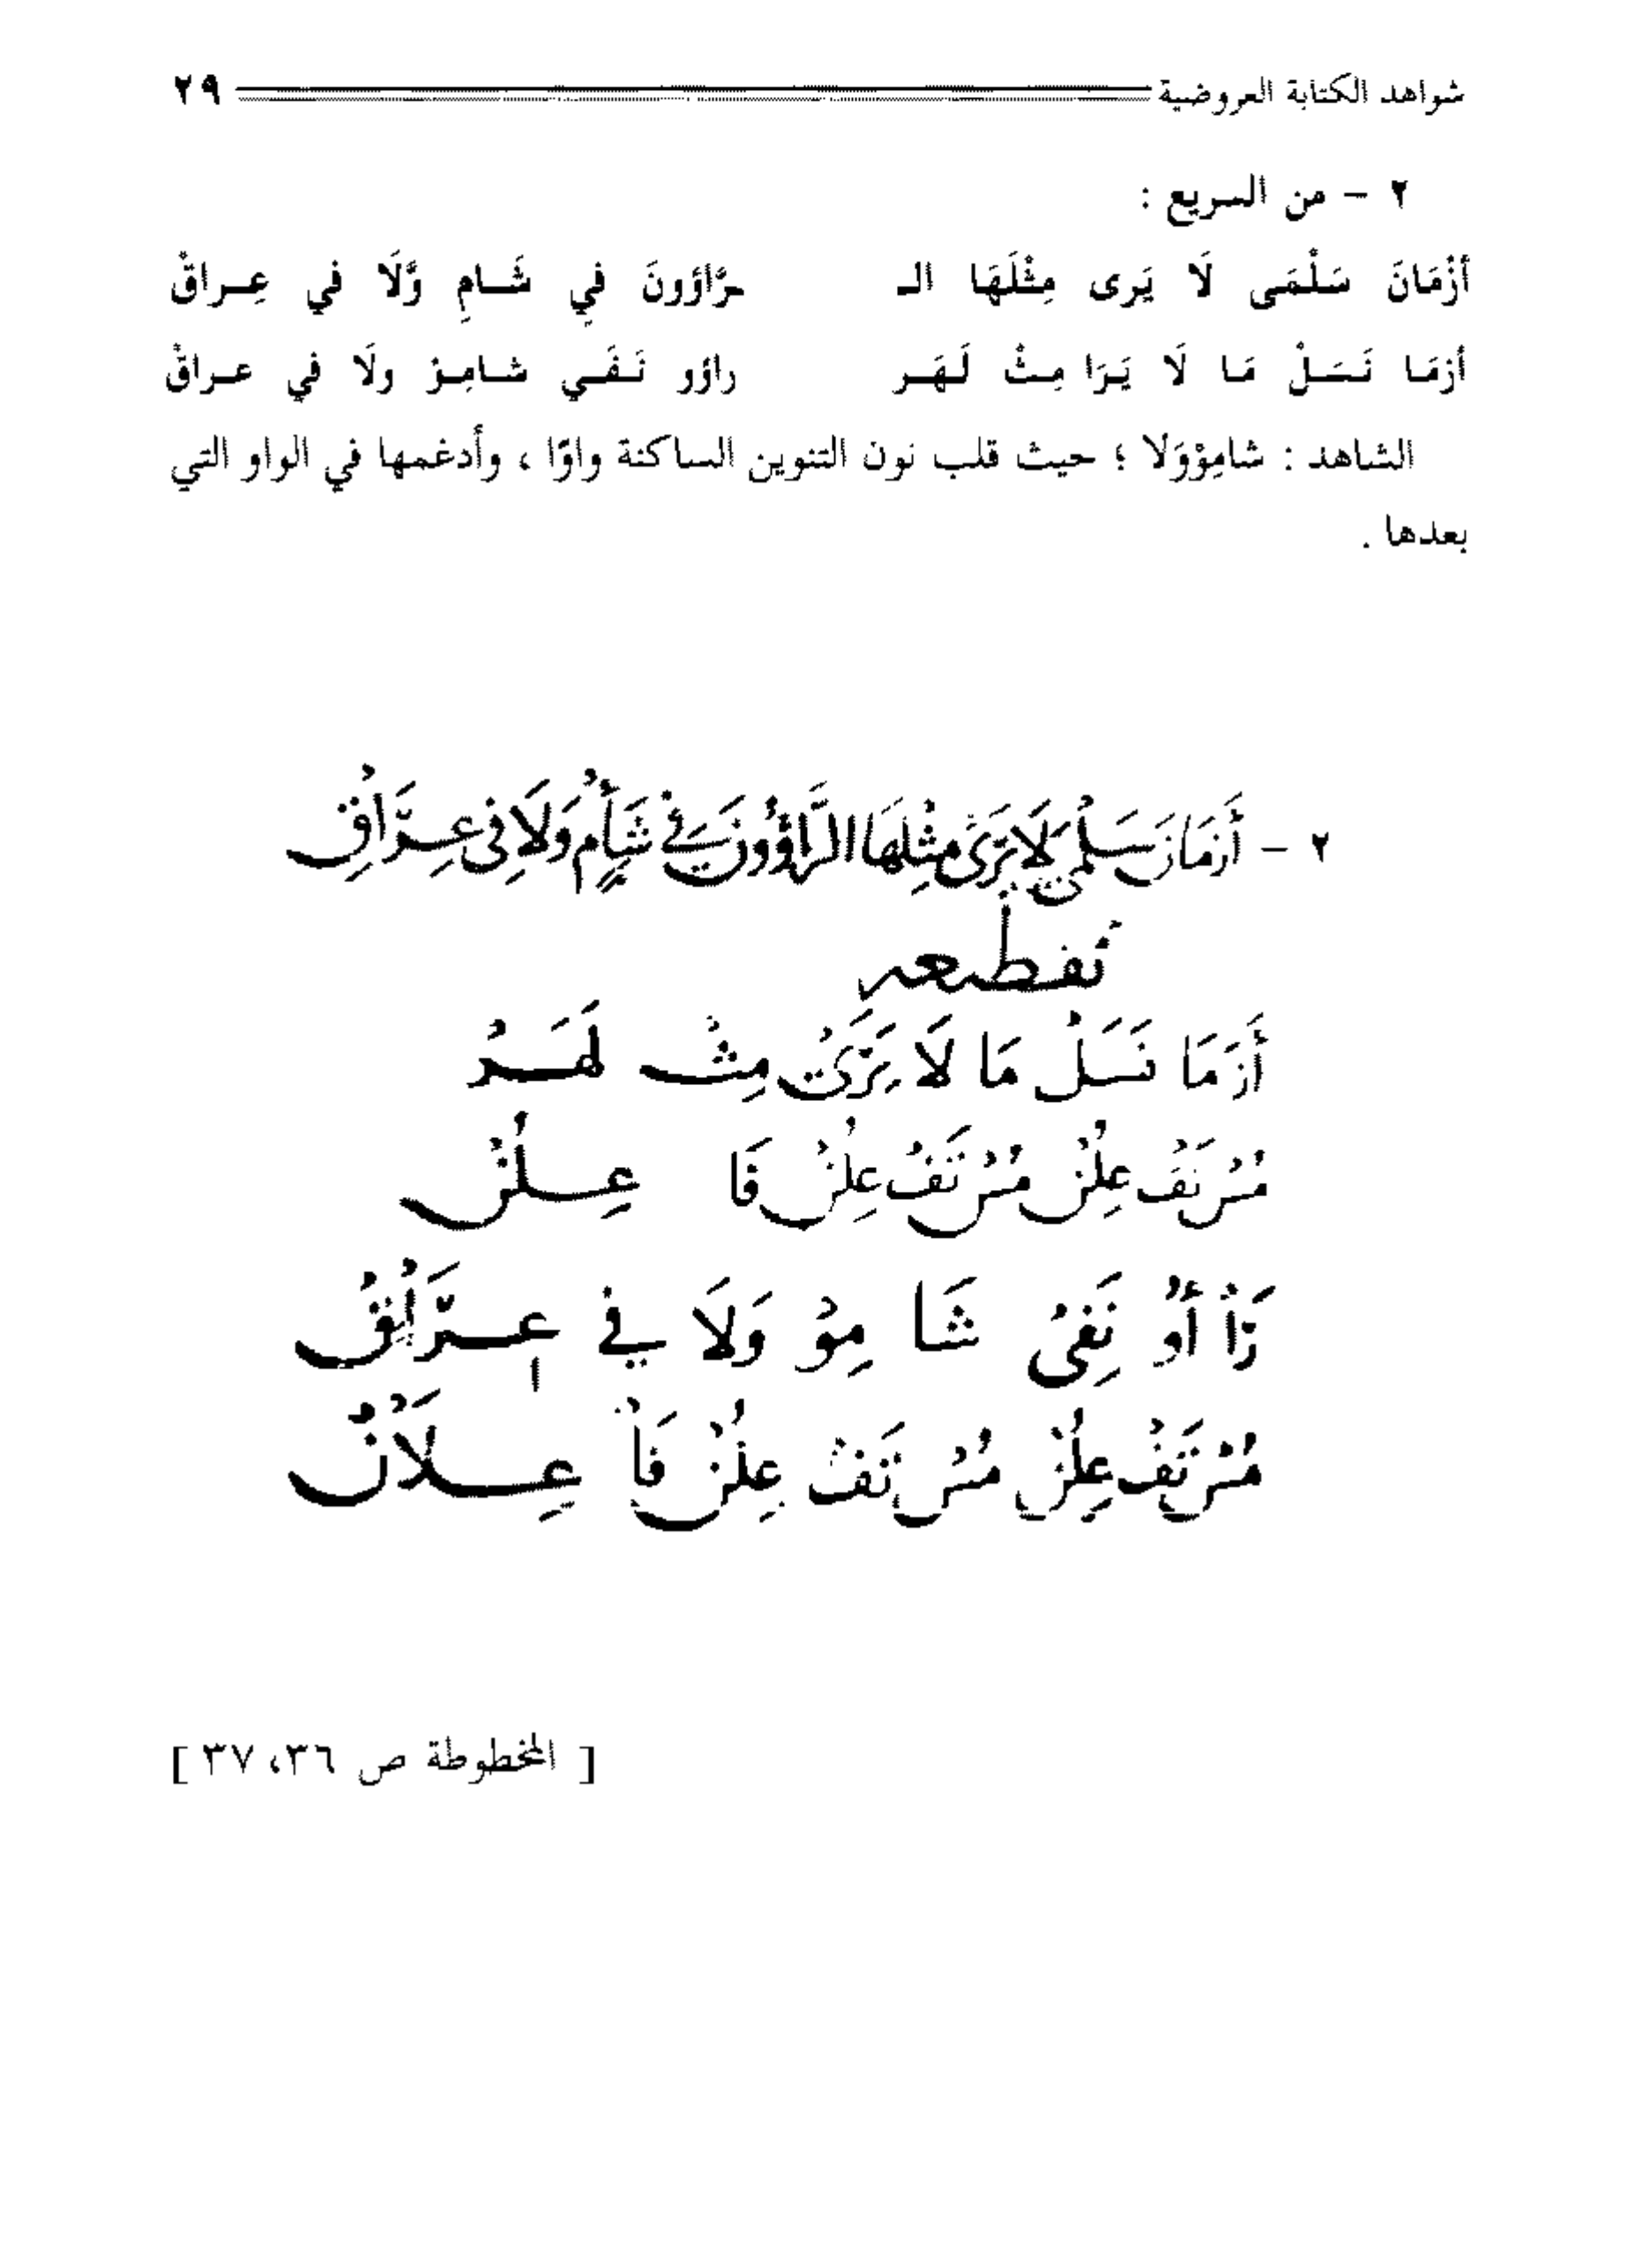 شواهد الكتابة العروضية ٢٩
٢ - من السريع :
أزْمَانَ سَلْمَى لَا يَرى مِثْلَهَا الـ ـرَّاؤونَ فِي شَـامٍ وَّلَا في عِـراقْ
أزمَـا نَـسَـلْ مَـا لَا يَـرَا مِـثْ لَـهَـر راؤو نَـفَـي شـامِـوْ ولَا في عـراقْ
الشاهد : شامِوْوَلا ؛ حيث قلب نون التنوين الساكنة واوًا ، وأدغمها في الواو التي
بعدها .
٢ - أَزمَانَ سَلْمَى لَا يَرَىٰ مِثْلَهَا الرَّاؤُونَ فِي شَأْمٍ وَلَا فِي عِرَاقْ
تقطيعه
أَزمَا نَسَلْ مَا لَا يَرَىْ مِثْ لَهَرْ
مُسْتَفْعِلُنْ مُسْتَفْعِلُنْ فَا عِلُنْ
رَاْ أُوْ نَفِىْ شَا مِوْ وَلَا فِي عِرَاقْ
مُسْتَفْعِلُنْ مُسْتَفْعِلُنْ فَاْ عِلَانْ
[ المخطوطة ص ٣٦، ٣٧ ]